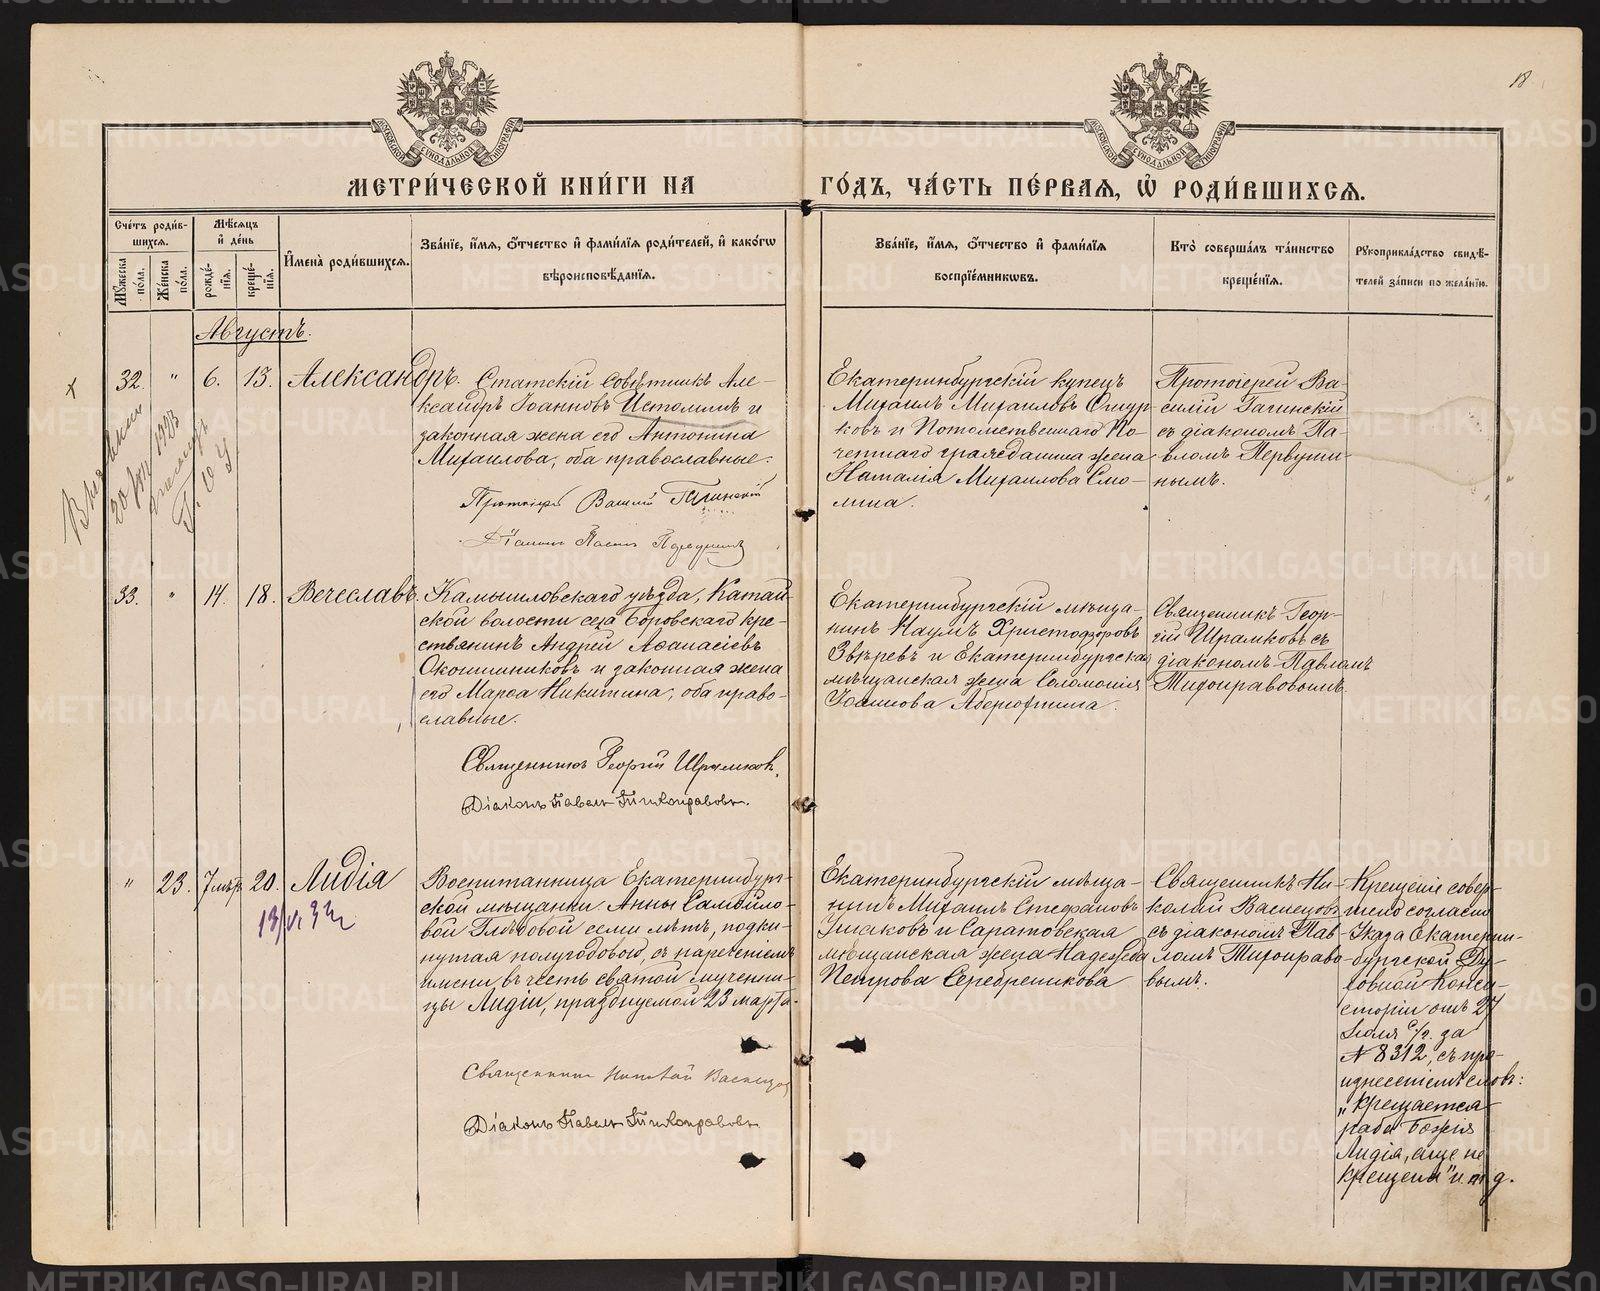 18
МОСКОВСКОЙ СѴНОДАЛЬНОЙ ТИПОГРАФІИ
МОСКОВСКОЙ СѴНОДАЛЬНОЙ ТИПОГРАФІИ
МЕТРИ́ЧЕСКОЙ КНИ́ГИ НА ГО́ДЪ, ЧА́СТЬ ПЕ́РВАѦ, Ѡ҆ РОДИ́ВШИХСѦ.
Сче́тъ роди́в-
шихсѧ.
Мꙋ́жеска по́ла.
Же́нска по́ла.
Мѣ́сѧцъ
и҆ де́нь
рожде́-
нїѧ.
креще́-
нїѧ.
И҆мена̀ роди́вшихсѧ.
Зва́нїе, и҆́мѧ, ѻ҆́тчество и҆ фами́лїѧ роди́телей, и҆ како́гѡ
вѣроисповѣ́данїѧ.
Зва́нїе, и҆́мѧ, ѻ҆́тчество и҆ фами́лїѧ
воспрїе́мникѡвъ.
Кто̀ соверша́лъ та́инство
креще́нїѧ.
Рꙋкоприкла́дство свидѣ́-
телей за́писи по жела́нїю.
Августъ.
32. " 6. 13. Александръ.
Статскій Совѣтникъ Але-
ксандръ Іоанновъ Истоминъ и
законная жена его Антонина
Михаилова, оба православные.
Протоіерей Василій Гагинскій
Діаконъ Павелъ Первушинъ
Екатеринбургскій купецъ
Михаилъ Михаиловъ Ошур-
ковъ и Потомственнаго По-
четнаго гражданина жена
Наталія Михаилова Смо-
лина.
Протоіерей Ва-
силій Гагинскій
съ діакономъ Па-
вломъ Первуши-
нымъ.
33. " 14. 18. Вечеславъ.
Камышловскаго уѣзда, Катай-
ской волости села Боровскаго кре-
стьянинъ Андрей Аѳанасіевъ
Оконишниковъ и законная жена
его Марѳа Никитина, оба право-
славные.
Священникъ Георгій Шрамковъ.
Діаконъ Павелъ Тихонравовъ.
Екатеринбургскій мѣща-
нинъ Наумъ Христофоровъ
Звѣревъ и Екатеринбургская
мѣщанская жена Соломонія
Іоаннова
Священникъ Геор-
гій Шрамковъ съ
діакономъ Павломъ
Тихонравовымъ.
" 23. 20. Лидія
Воспитанница Екатеринбург-
ской мѣщанки Анны Самойло-
вой Глѣбовой семи лѣтъ, подки-
нутая полугодовою, съ нареченіемъ
имени въ честь святой мучени-
цы Лидіи, празднуемой 23 марта.
Священникъ Николай Васнецовъ
Діаконъ Павелъ Тихонравовъ
Екатеринбургскій мѣща-
нинъ Михаилъ Стефановъ
Ушаковъ и Саратовская
мѣщанская жена Надежда
Петрова Серебренникова
Священникъ Ни-
колай Васнецовъ
съ діакономъ Пав-
ломъ Тихонраво-
вымъ.
Крещеніе совер-
шено согласно
Указа Екатерин-
бургской Ду-
ховной Конси-
сторіи отъ 27
Іюля с/г. за
№ 8312, съ про-
изнесеніемъ словъ:
„крещается
раба Божія
Лидія, аще не
крещена" и т. д.